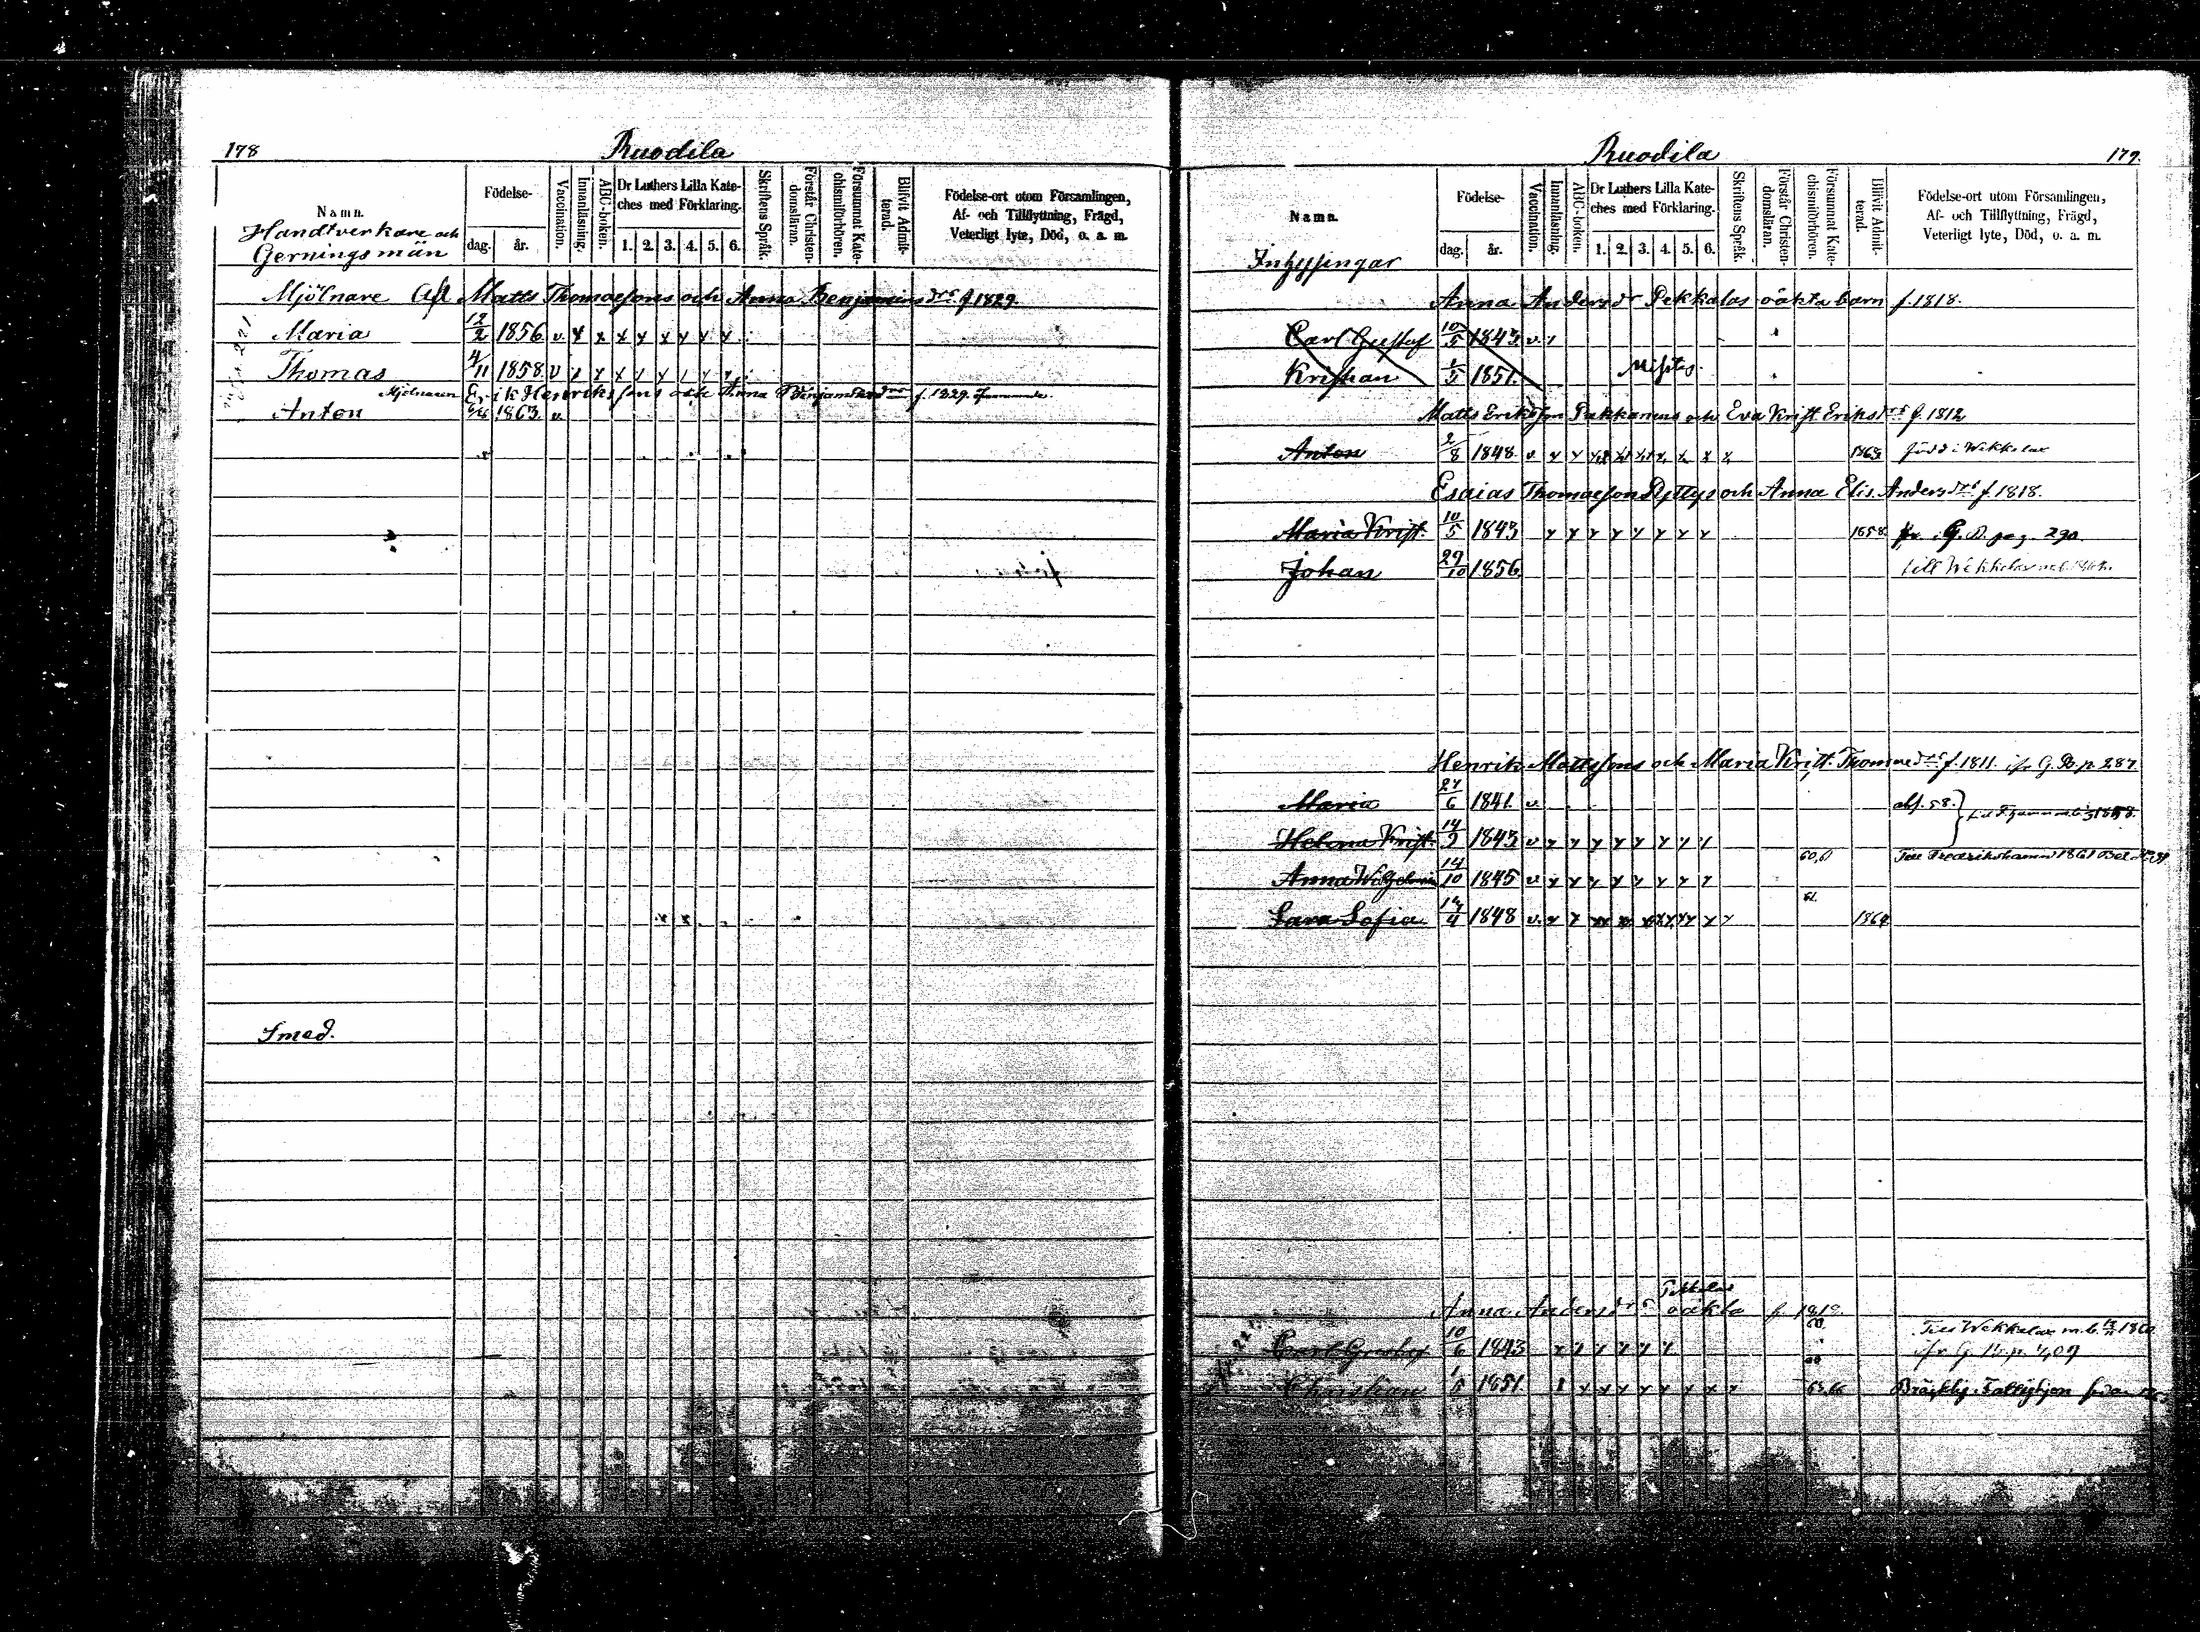 178
Ruodila
Namn.
Handtverkare och
Gerningsmän
Födelse-
dag.
år.
Vaccination.
Innanläsning.
ABC-boken.
Dr Luthers Lilla Kate-
ches med Förklaring.
1. 2. 3. 4. 5. 6.
Skriftens Språk.
Förstår Christen-
domsläran.
Försummat Kate-
chismiförhören.
Blifvit Admit-
terad.
Födelse-ort utom Församlingen,
Af- och Tillflyttning, Frägd,
Veterligt lyte, Död, o. a. m.
Mjölnare Afl Matts Thomaesons och Anna Benjamins drs f. 1829
Maria 12/2 1856 v x x x x x x x x
Thomas 4/11 1858 v
Mjölnaren Erik Henrikssons och Anna Benjamins drs f. 1829
Anton 1863 v
Smed.
Ruodila
179.
Namn.
Inhysingar
Födelse-
dag.
år.
Vaccination.
Innanläsning.
ABC-boken.
Dr Luthers Lilla Kate-
ches med Förklaring.
1. 2. 3. 4. 5. 6.
Skriftens Språk.
Förstår Christen-
domsläran.
Försummat Kate-
chismiförhören.
Blifvit Admit-
terad.
Födelse-ort utom Församlingen,
Af- och Tillflyttning, Frägd,
Veterligt lyte, Död, o. a. m.
Anna Anders dr Pekkalas oäkta barn f. 1818.
Carl Gustaf 10/5 1843 v
Kristian 1/5 1851
Matts Eriksson Pukkanens och Eva Krist. Eriks drs f. 1812
Anton 2/8 1848 v 1863 född i Wekkelax
Esaias Thomaeson Pyttys och Anna Elis. Anders drs f. 1818.
Maria Krist. 10/5 1843 1858 G. B. pag. 290
Johan 29/10 1856 till Wekkelax
Henrik Mattssons och Maria Krist. Thomae drs f. 1811. G. B. p. 287
Maria 27/6 1841 v abs. 58.
Helena Krist. 14/9 1843 v
60,61 Till Fredrikshamn 1861
Anna Wilhelmin 14/10 1845 v
61.
Sara Sofia 1848 v 1864
Pekkalas
Anna Anders drs oäkta f. 1818
Till Wekkelax m. b. 1860
Carl Gustaf 10/6 1843 G. B. p. 409
Christian 1/5 1851 Bräcklig.